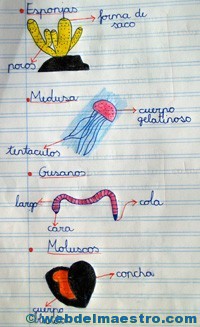 • Esponjas
forma de
saco
poros
• Medusa
cuerpo
gelatinoso
tentaculos
• Gusanos
largo
cola
cara
• Moluscos
concha
cuerpo
©webdelmaestro.com